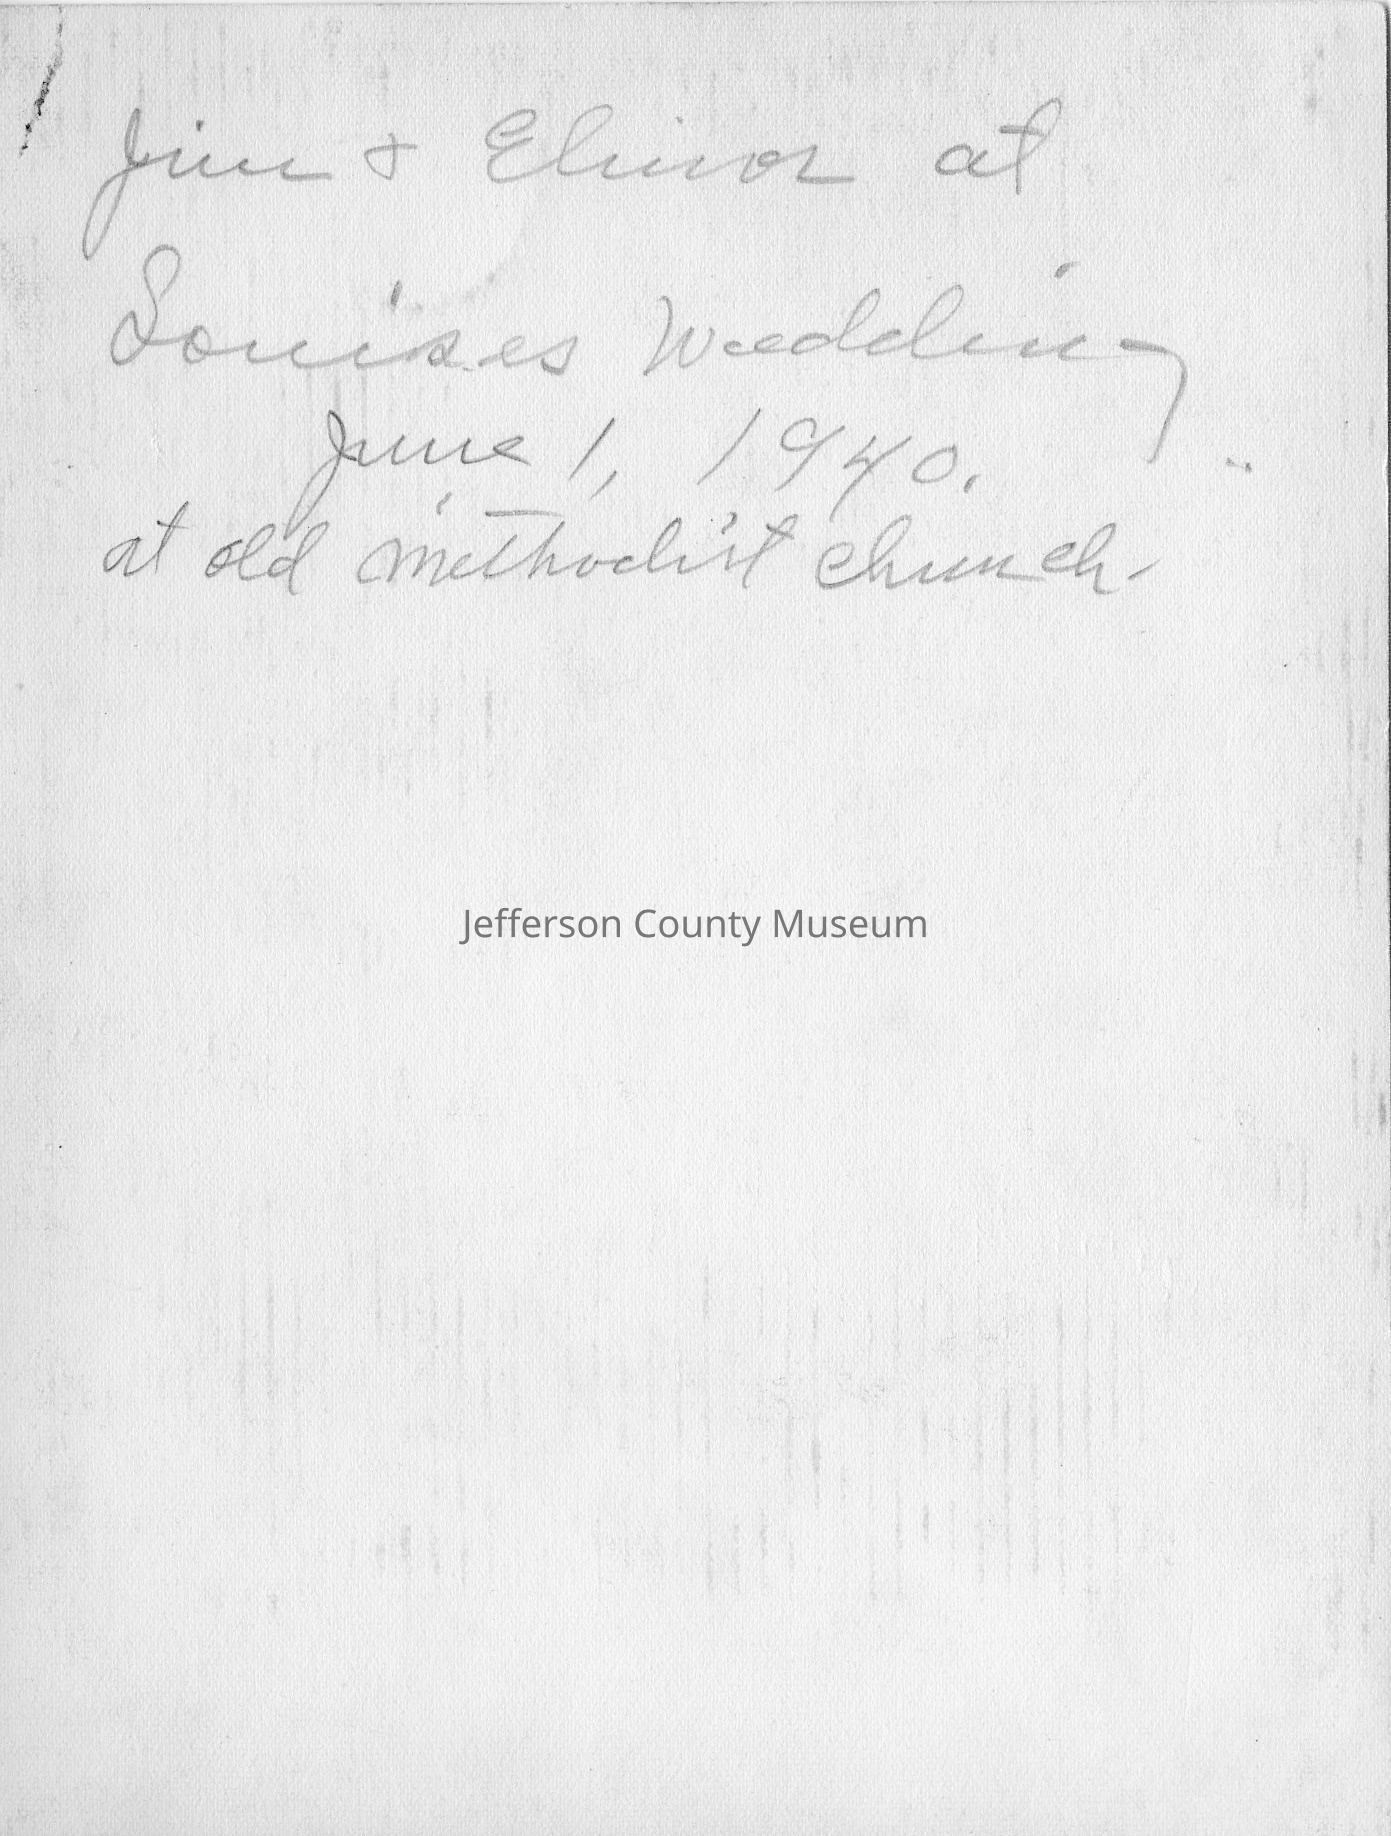 Jim & Elinor at
Louises Wedding
June 1, 1940.
at old Methodist Church
Jefferson County Museum